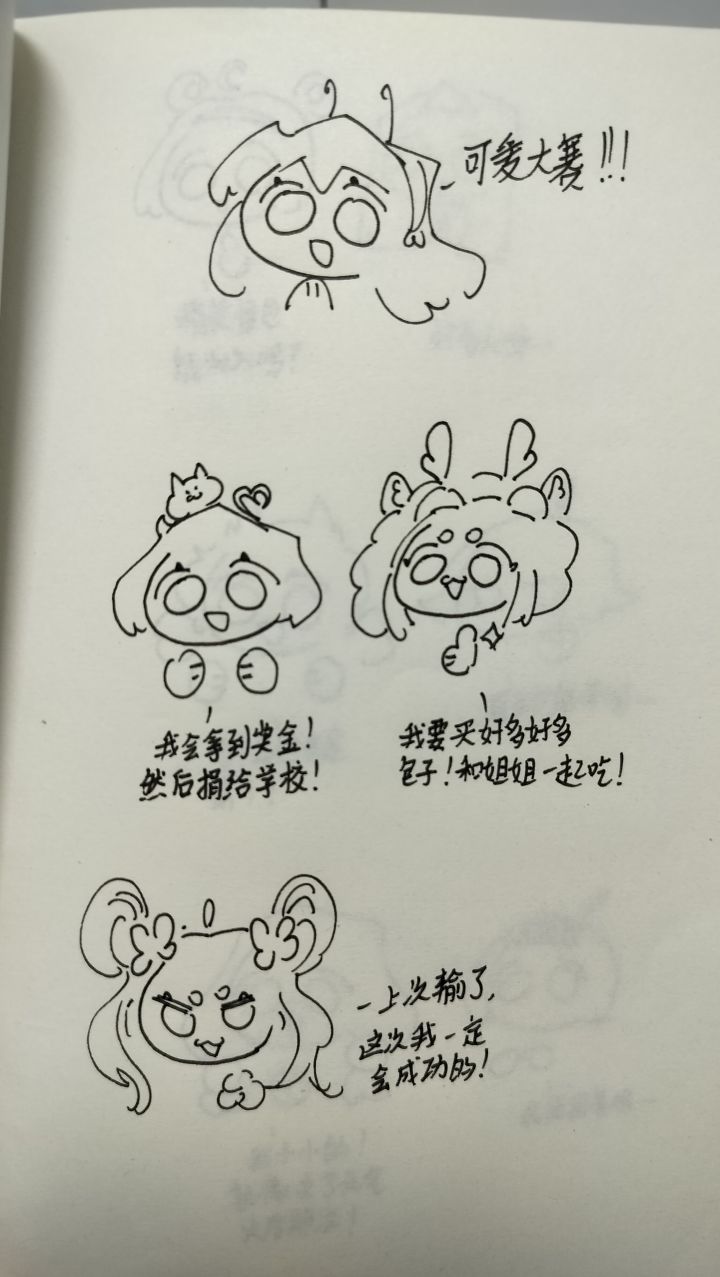 可爱大赛!!!
我会拿到奖金!
然后捐给学校!
我要买好多好多
包子!和姐姐一起吃!
上次输了,
这次我一定
会成功的!